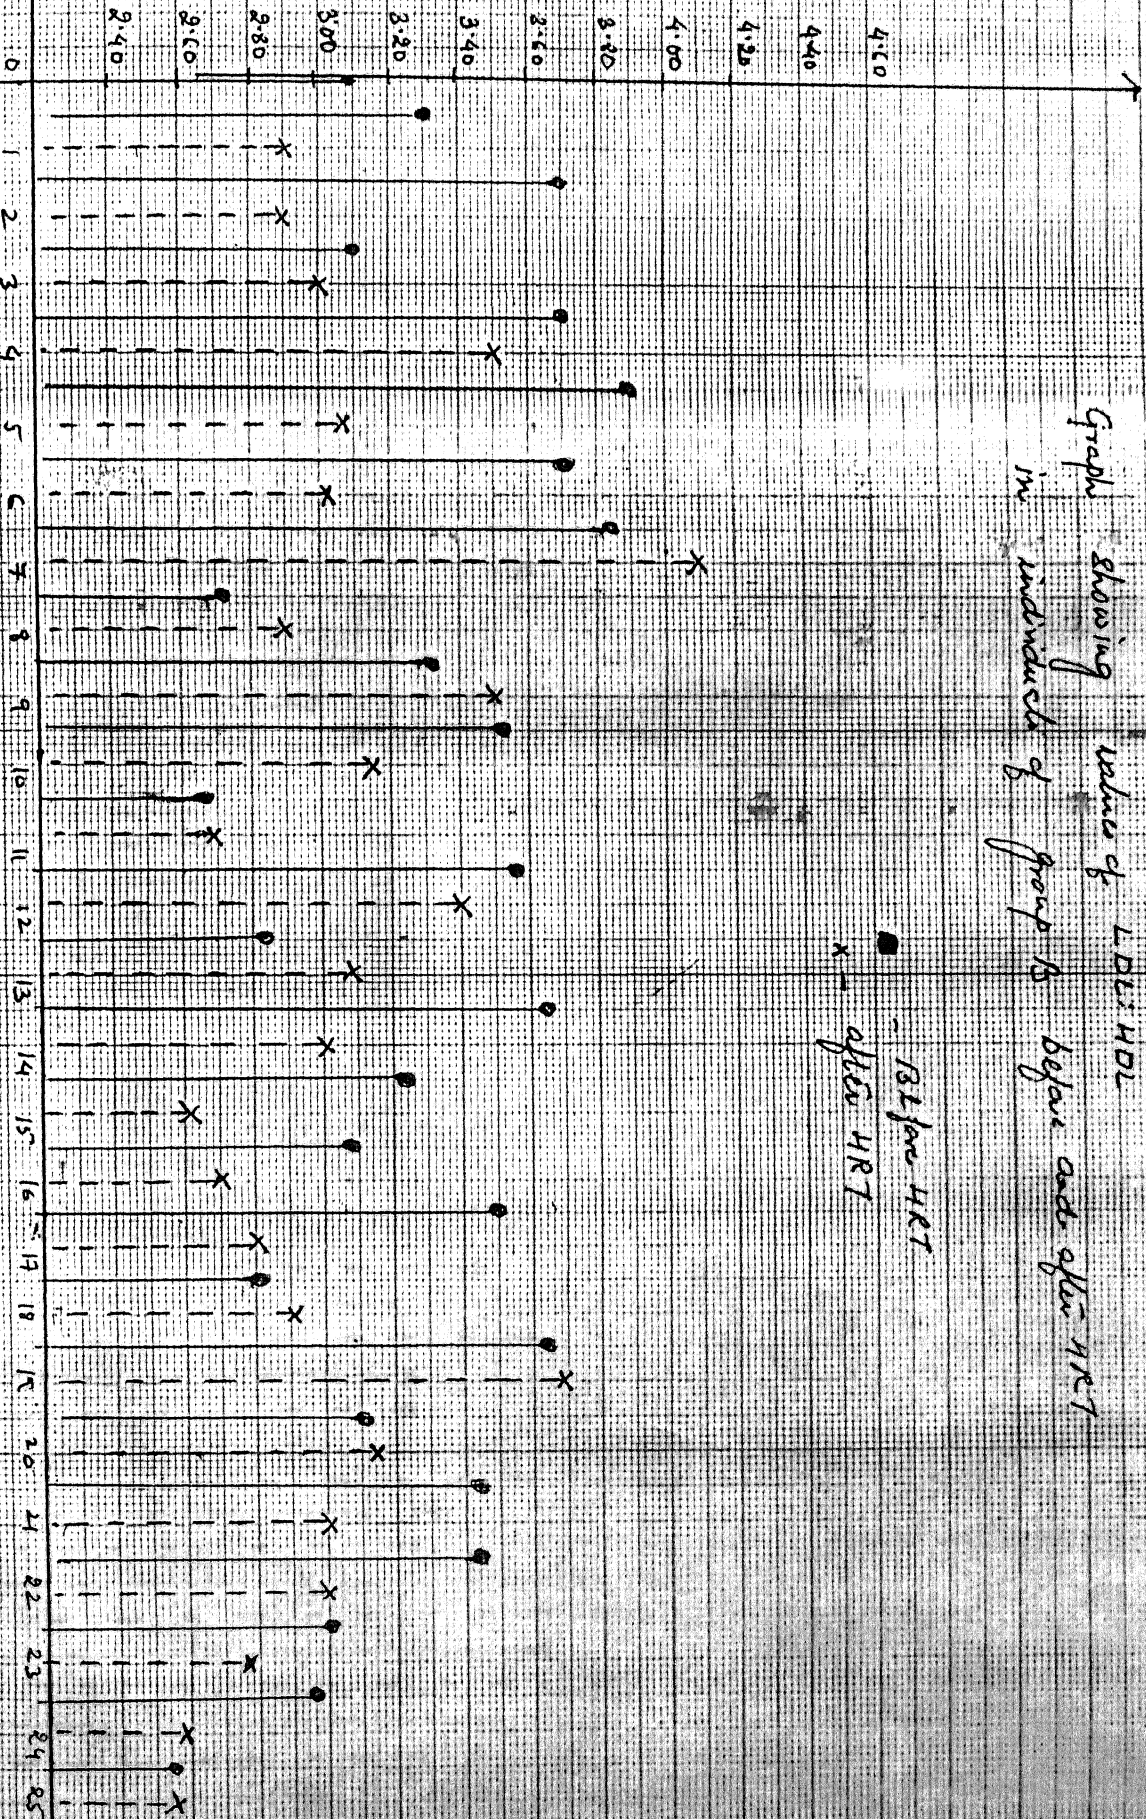 Graph showing values of LDL:HDL
in individuals of group B before and after HRT
- Before HRT
x - after HRT
4.60
4.40
4.20
4.00
3.80
3.60
3.40
3.20
3.00
2.80
2.60
2.40
0 1 2 3 4 5 6 7 8 9 10 11 12 13 14 15 16 17 18 19 20 21 22 23 24 25